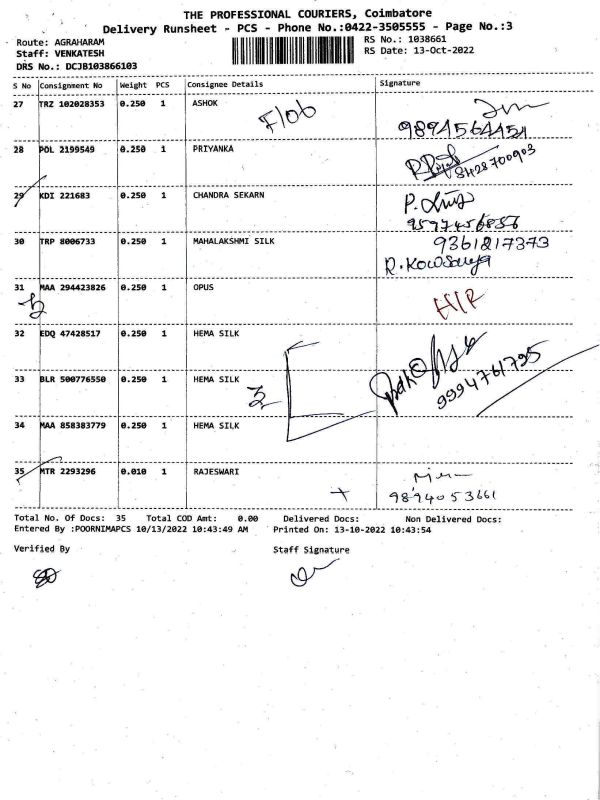 THE PROFESSIONAL COURIERS, Coimbatore
Delivery Runsheet - PCS - Phone No.:0422-3505555 - Page No.:3
Route: AGRAHARAM
RS No.: 1038661
Staff: VENKATESH
RS Date: 13-Oct-2022
DRS No.: DCJB103866103
S No Consignment No Weight PCS Consignee Details Signature
27 TRZ 102028353 0.250 1 ASHOK
9894564454
28 POL 2199549 0.250 1 PRIYANKA
8428700903
29 KDI 221683 0.250 1 CHANDRA SEKARN
9597456856
30 TRP 8006733 0.250 1 MAHALAKSHMI SILK 9361217373
R. Kowsalya
31 MAA 294423826 0.250 1 OPUS
H/R
32 EDQ 47428517 0.250 1 HEMA SILK
33 BLR 500776550 0.250 1 HEMA SILK 3 9994761795
34 MAA 858383779 0.250 1 HEMA SILK
35 MTR 2293296 0.010 1 RAJESWARI
9894053661
Total No. Of Docs: 35 Total COD Amt: 0.00 Delivered Docs: Non Delivered Docs:
Entered By :POORNIMAPCS 10/13/2022 10:43:49 AM Printed On: 13-10-2022 10:43:54
Verified By Staff Signature